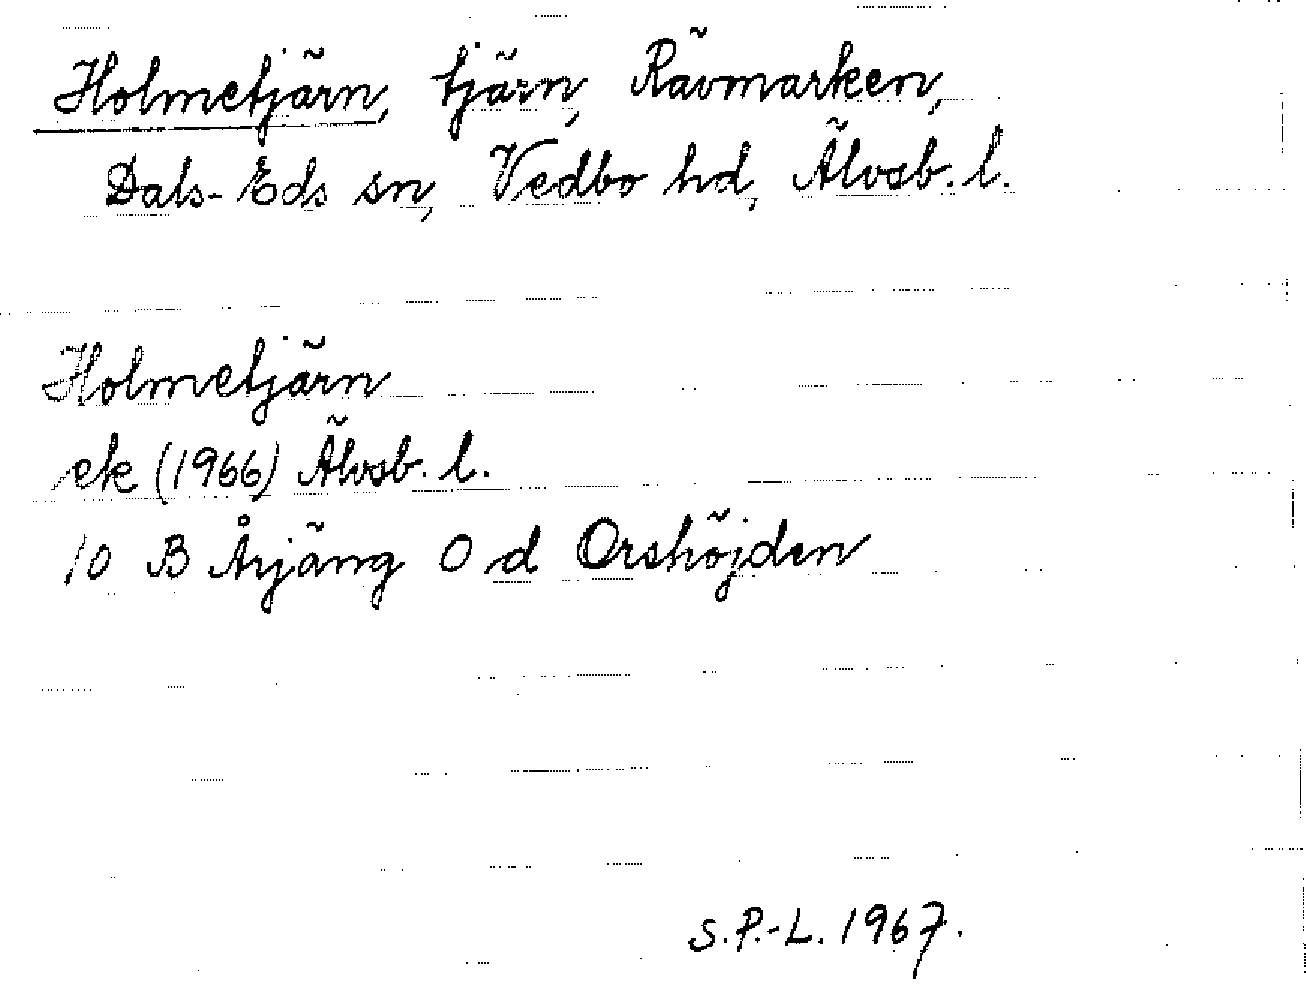 Holmetjärn, tjärn, Rävmarken,
Dals-Eds sn, Vedbo hd, Älvsb. l.
Holmetjärn
ek (1966) Älvsb. l.
10 B Årjäng 0 d Orshöjden
S.P.-L. 1967.